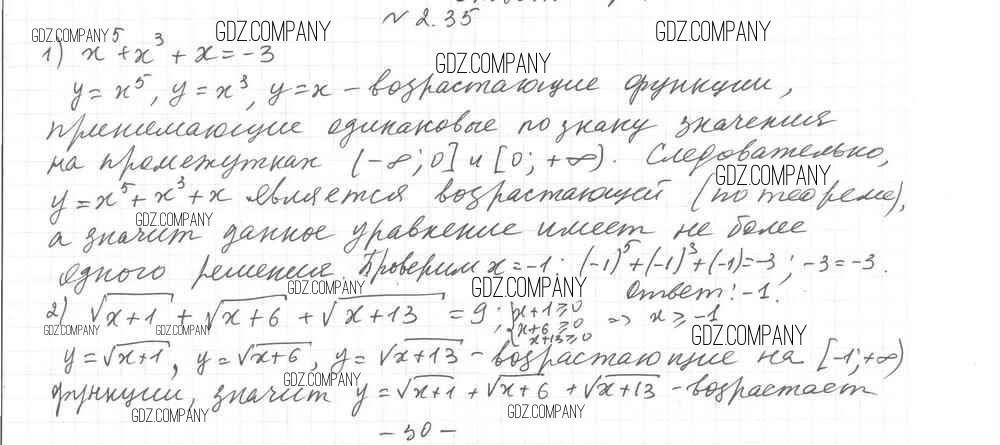 № 2.35
GDZ.COMPANY GDZ.COMPANY GDZ.COMPANY
1) x⁵ + x³ + x = -3
GDZ.COMPANY
y = x⁵, y = x³, y = x – возрастающие функции,
принимающие одинаковые по знаку значения
на промежутках (-∞; 0] и [0; +∞). Следовательно,
GDZ.COMPANY
y = x⁵ + x³ + x является возрастающей (по теореме),
GDZ.COMPANY
а значит данное уравнение имеет не более
одного решения. Проверим x = -1: (-1)⁵ + (-1)³ + (-1) = -3; -3 = -3.
GDZ.COMPANY GDZ.COMPANY
Ответ: -1.
2) √x+1 + √x+6 + √x+13 = 9; { x+1 ≥ 0 x+6 ≥ 0 x+13 ≥ 0 => x ≥ -1
GDZ.COMPANY GDZ.COMPANY GDZ.COMPANY
y = √x+1, y = √x+6, y = √x+13 – возрастающие на [-1; +∞)
GDZ.COMPANY
функции, значит y = √x+1 + √x+6 + √x+13 - возрастает
GDZ.COMPANY GDZ.COMPANY
- 30 -